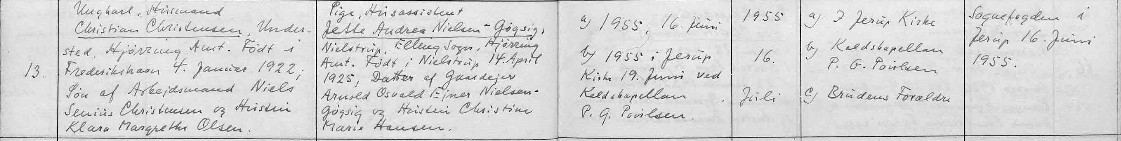 13.
Ungkarl, Husmand
Christian Christensen, Under-
sted, Hjørring Amt. Født i
Frederikshavn 4. Januar 1922,
Søn af Arbejdsmand Niels
Senius Christensen og Hustru
Klara Margrethe Olsen.
Pige, Husassistent
Jette Andrea Nielsen-Gøgsig,
Nielstrup, Elling Sogn, Hjørring
Amt. Født i Nielstrup 14. April
1925, Datter af Gaardejer
Arnold Osvald Ejner Nielsen-
Gøgsig og Hustru Christine
Marie Hansen.
a) 1955, 16. Juni
b) 1955 i Jerup
Kirke 19. Juni ved
Kaldskapellan
P. G. Poulsen.
1955
16.
Juli
a) I Jerup Kirke
b) Kaldskapellan
P. G. Poulsen
c) Brudens Forældre
Sognefogden i
Jerup 16. Juni
1955.